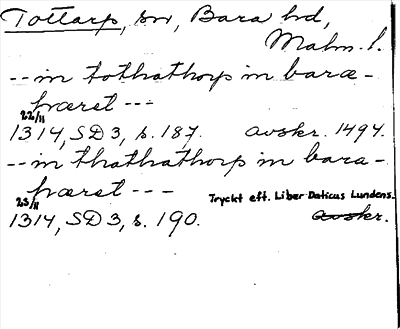 Tottarp, sn, Bara hd,
Malm. l.
-- in tothathorp in baræ-
hæret ---
22/11
1314, SD 3, s. 187. avskr. 1494.
-- in thathathorp in bara-
hæret ---
23/11 Tryckt eft. Liber Daticus Lundens.
1314, SD 3, s. 190. avskr.